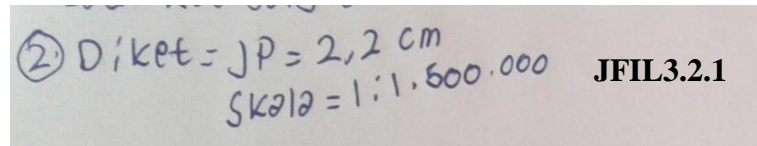 ② Diket = JP = 2,2 cm
Skala = 1 : 1.500.000
JFIL3.2.1